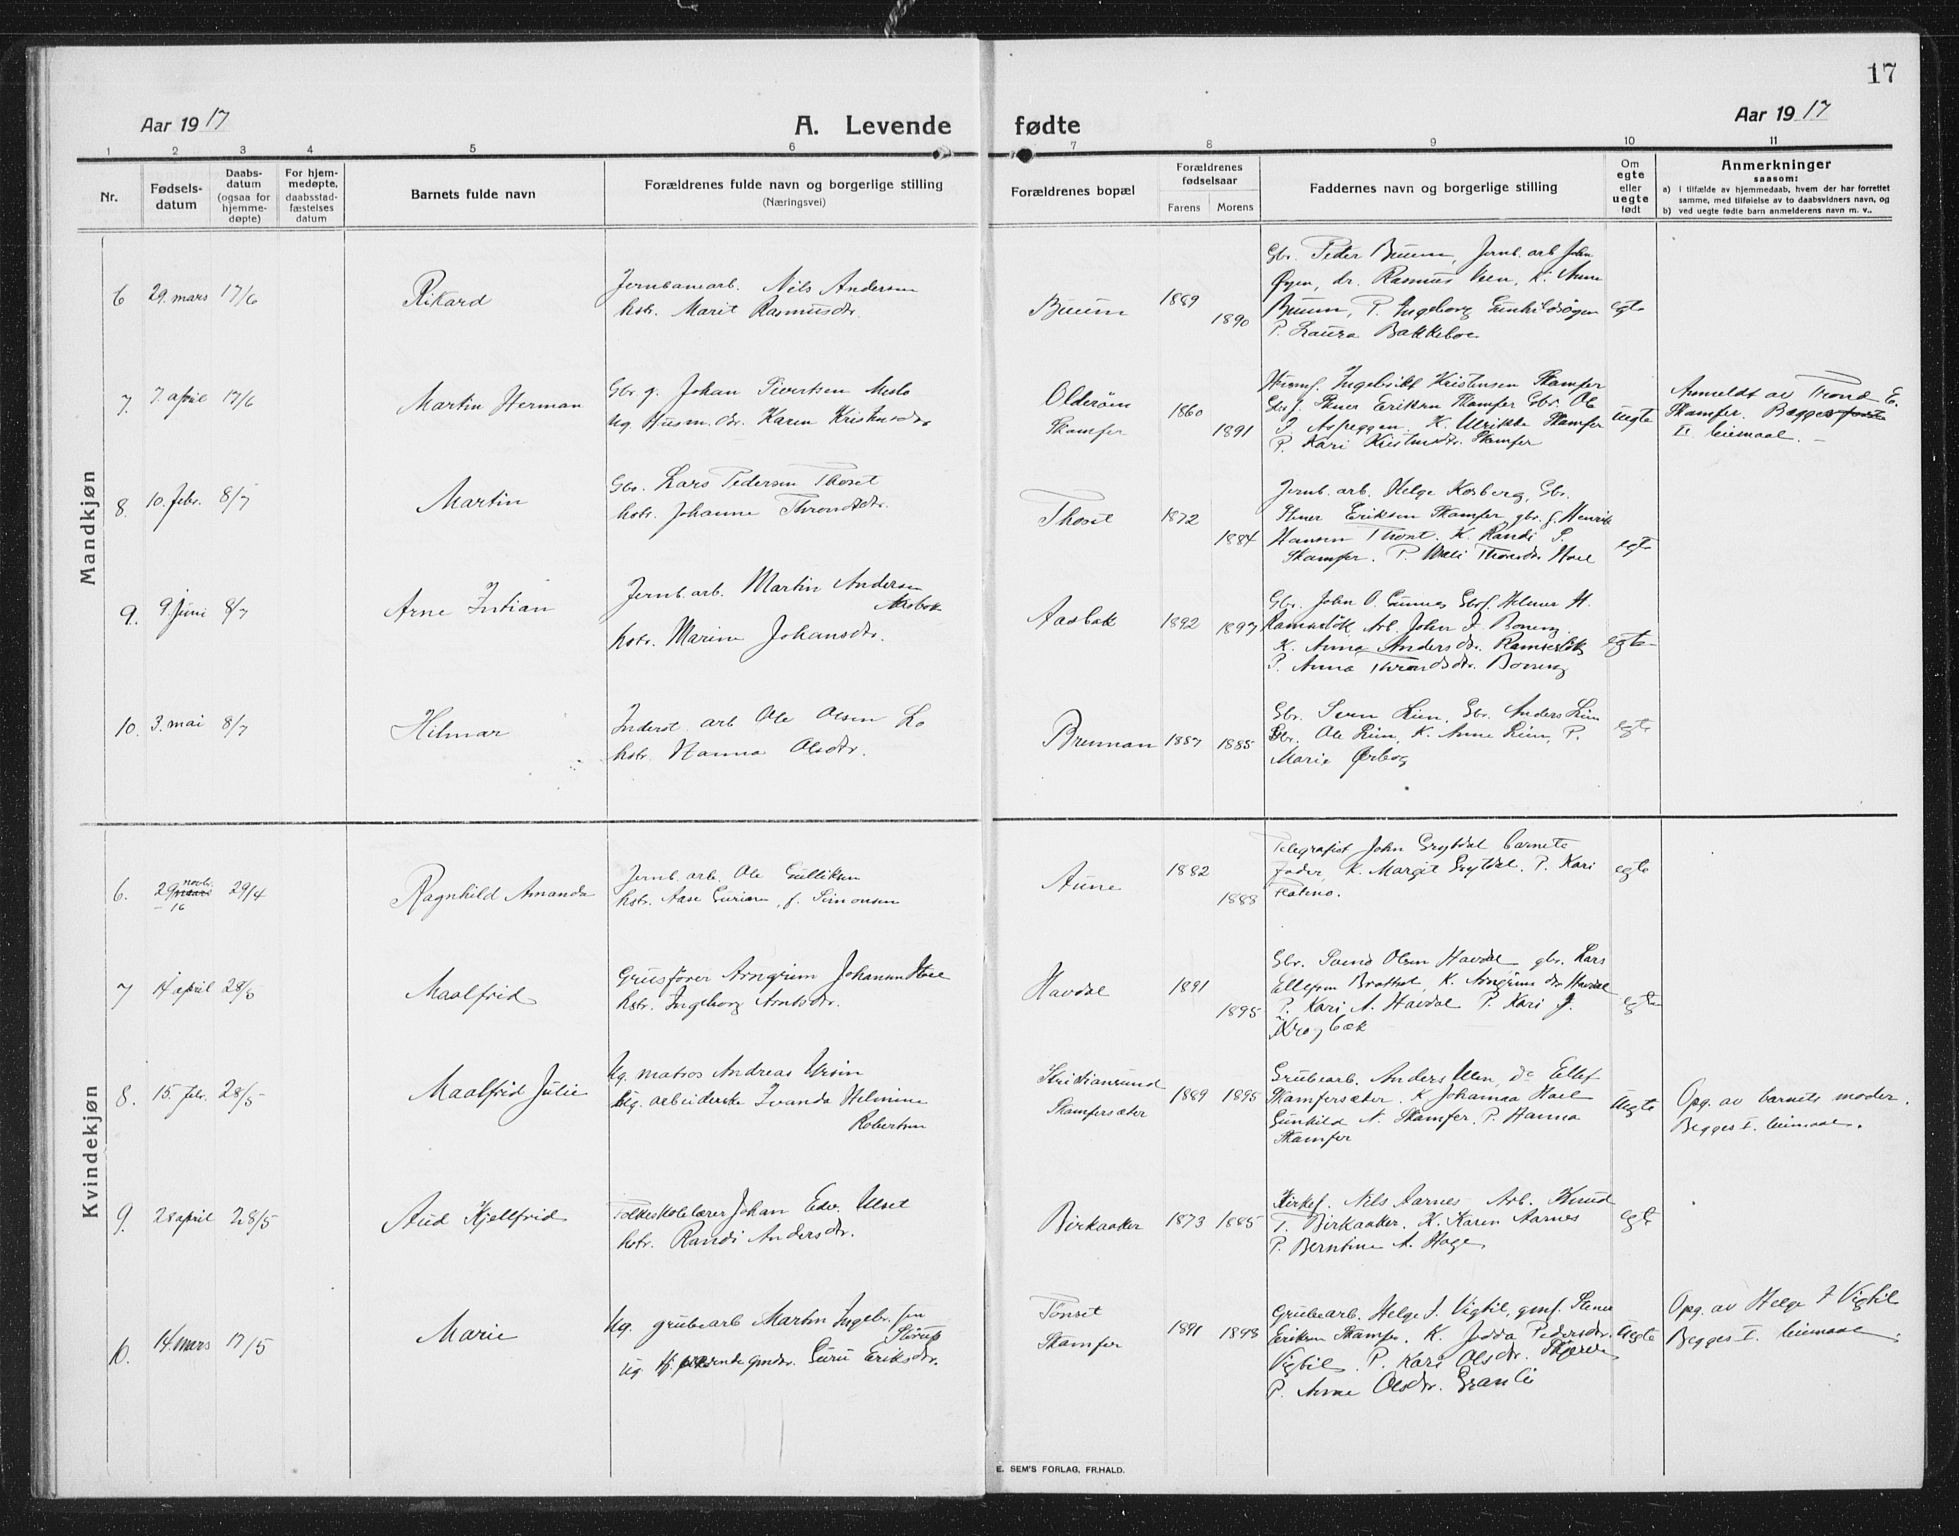 17
Aar 1917
A. Levende fødte
Aar 1917
1 2 3 4 5 6 7 8 9 10 11
Nr.
Fødsels-
datum
Daabs-
datum
(ogsaa for
hjemme-
døpte)
For hjem-
medøpte,
daabsstad-
fæstelses
datum
Barnets fulde navn
Forældrenes fulde navn og borgerlige stilling
(Næringsvei)
Forældrenes bopæl
Forældrenes
fødselsaar
Farens Morens
Faddernes navn og borgerlige stilling
Om
egte
eller
uegte
født
Anmerkninger
saasom:
a) i tilfælde av hjemmedaab, hvem der har forrettet
samme, med tilføielse av to daabsvidners navn, og
b) ved uegte fødte barn anmelderens navn m. v..
Mandkjøn
6 29. mars 17/6 Rikard
Jernbanearb. Nils Andersen
hstr. Marit Rasmusdr.
Buum 1889 1890
Gbr. Peder Buum, Jernb. arb John
Øyen, dr. Rasmus Veen, K. Anne
Buum, P. Ingeborg Gunhildsøgen
P. Laura Bakkeboe
egte
7. 7. april 17/6 Martin Herman
Gbr g. Johan Sivertsen Meslo
Ug Husm. dr. Karen Kristensdr.
Olderøien
Skamfer
1860 1891
Husmf. Ingebrikt Kristensen Skamfer
Gbr f. Stener Eriksen Skamfer Gbr. Ole
J. Aspeggen. K. Ulrikke Skamfer
P. Kari Kristensdr. Skamfer
uegte
Anmeldt av Trond E.
Skamfer. Begges
I leiemaal. -
8. 10. febr. 8/7 Martin
Gbr. Lars Pedersen Thoset
hstr. Johanne Throndsdr.
Thoset 1872 1884
Jernb. arb. Helge Kosberg, Gbr.
Stener Eriksen Skamfer, gbr. f. Henrik
Hansen Thoset. K. Randi P.
Skamfer. P. Mali Thoresdr. Hoel
egte
9. 9. juni 8/7 Arne Intian
Jernb. arb. Martin Andersen
Aasbak
hstr. Marine Johansdr.
Aasbak 1892 1897
Gbr. John O. Gunnes Gbrf. Helmer H.
Ramsesløk Arb. John J. Boneng
K. Anna Andersdr. Ramsesløk
P. Anna Throndsdr. Boneng
egte
10. 3. mai 8/7 Hilmar
Inderst. arb Ole Olsen Lo
hstr. Hanna Olsdr.
Brennan 1887 1885
Gbr. Sven Lien, Gbr. Anders Lien
Gbr. Ole Lien, K. Anne Lien, P.
Marie Ørbog
egte
Kvindekjøn
6. 29 novbr. 29/4 Ragnhild Amanda
- 16
Jernb. arb. Ole Gulliksen
hstr. Aase Gurine, f. Simonsen
Aune 1882 1888
Telegrafist John Grytdal barnets
Fader, K. Margit Grytdal. P. Kari
Flatmo.
egte
7 14 april 28/5 Maalfrid
Grusfører Arngrim Johansen Hoel
hstr. Ingeborg Arntsdr.
Havdal 1891 1895
Gbr. Svend Olsen Havdal gbr. Lars
Ellefsen Brattset, K. Arngrims dr. Havdal
P. Kari A. Havdal P. Kari J.
Krogbæk
egte
8. 15. febr. 28/5 Maalfrid Julie
Ug. matros Andreas Ursin
Ug. arbeiderske Ivanda Helmine
Robertsen
Kristiansund
Skamfersæter
1889 1895
Grubearb. Anders Veen, do Ellef
Skamfersæter. K Johanna Hoel
Gunhild A. Skamfer. P. Hanna
Skamfer
Uegte
Opg. av barnets moder.
Begges I. leiemaal.
9. 28 april 28/5 Aud Kjellfrid
Folkeskolelærer Johan Edv. Ulset
hstr. Randi Andersdr.
Birkaaker 1873 1885
Kirkef. Nils Aarnes Arb. Knud
T. Birkaaker. K. Karen Aarnes
P. Berntine A. Hage
egte
10. 14. mars 17/5 Marie
Ug. grubearb Martin Ingebr.sen
Størup
ug tjenende gmdr. Guru Eriksdr.
Tønset
Skamfer
1891 1898
Grubearb. Helge J. Vigtil, gmf. Stener
Eriksen Skamfer. K. Jodda Pedersdr.
Vigtil. P. Kari Olsdr. Skjerve
P. Anne Olsdr. Granlie
Uegte
Opg. av Helge J Vigtil
Begges I. leiemaal.
E. SEM'S FORLAG, FR.HALD.